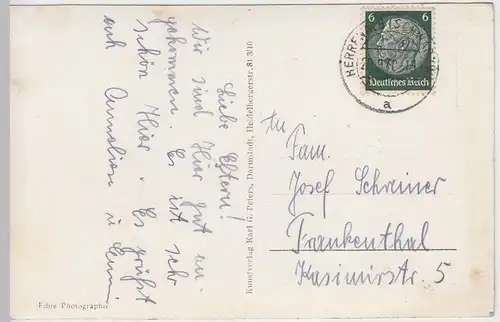 Liebe Eltern!
Wir sind Hier gut an-
gekommen. Es ist sehr
schön Hier. Es grüßt
euch Anneliese u. Emmi
Echte Photographie
Kunstverlag Karl G. Peters, Darmstadt, Heidelbergerstr. 81 3/10
6 6
Deutsches Reich
a
An
Fam.
Josef Schreiner
Frankenthal
Kasimirstr. 5